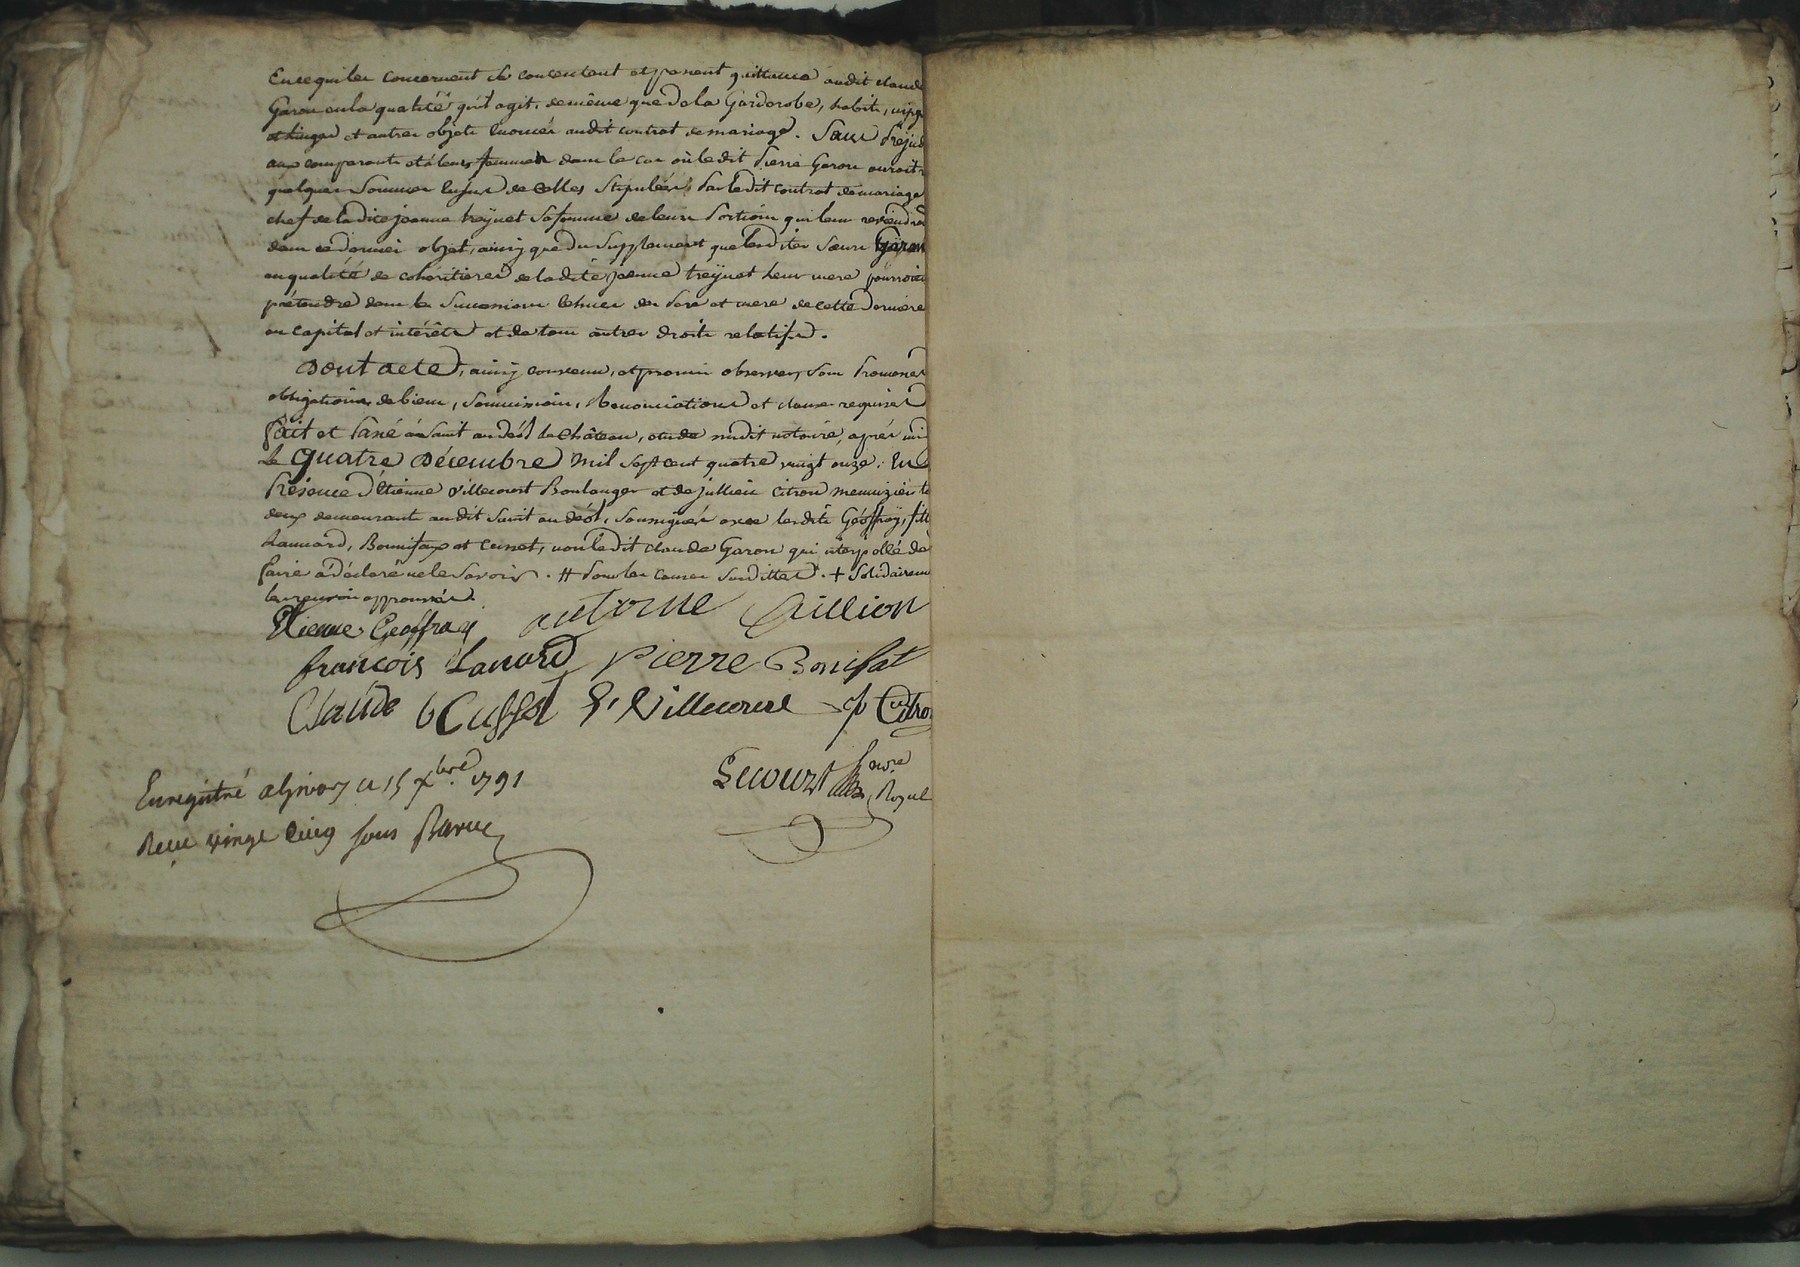 En ce qui les concernent se contentent et passent quittance audit claude
Garon en la qualité qu'il agit, de même que de la Garderobe, habits, nipp
et linges et autres objets énoncés audit contrat de mariage. Sauf Préjud
aux comparants et à leurs femmes dans le cas où ledit Pierre Garon auroit
quelques Sommes en sus de Celles Stipulées par ledit contrat de mariage
chef de ladite jeanne treynet Sa femme de leurs Portions qui leur reviendroi
dans ce dernier objet, ainsy que du Supplement que lesdites Sœurs Garon
en qualité de cohéritieres de ladite jeanne treÿnet leur mere pourroient
prétendre dans les Successions des Pere et mere de cette Derniere
en Capital et intérêts et de tous autres droits relatifs.
Dont acte, ainsy convenu, et promis observer, Sous Promesses
obligations de biens, Soumissions, Renonciations et clauses requises
fait et Passé à Saint andéol le Château, étude dudit notaire, après mi
Le Quatre Décembre mil Sept cent quatre vingt onze ; En
Présence d'Etienne Villecourt Boulanger et de jullien Citron menuizier to
deux demeurants audit Saint andéol, Soussignés avec lesdits Géoffroÿ,
Lannard, Bonnifax et Cusset, non ledit claude Garon qui interpellé de
faire a Déclaré ne le Savoir. # Pour les causes Susdittes. + Solidairem
les renvois approuvés.
Etienne Geoffray antoine
françois Lanard Pierre Bonifat
Claude Cusset E. Villecourt j Citron
Enregistré a Givors ce 15 Xbre 1791
Lecourt Royal
Reçu vingt Cinq sous